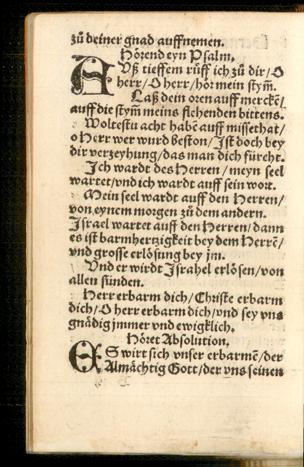 zů deiner gnad auffnemen.
Hörend eyn Psalm.
AUß tieffem růff ich zů dir/O
herr/O herr/hör mein stym̃.
Laß dein oren auff mercke͂/
auff die stym̃ meins flehenden bittens.
Woltestu acht habe͂ auff missethat/
o Herr wer wurd beston/Ist doch bey
dir verzeyhung/das man dich fürcht.
Ich wardt des Herren/meyn seel
wartet/vnd ich wardt auff sein wort.
Mein seel wardt auff den Herren/
von eynem morgen zů dem andern.
Israel wartet auff den Herren/dann
es ist barmhertzigkeit bey dem Herre͂/
vnd grosse erlösung bey jm.
Und er wirdt Israhel erlösen/von
allen sünden.
Herr erbarm dich/Christe erbarm
dich/O herr erbarm dich/vnd sey vns
gnädig jmmer vnd ewigklich.
Höret Absolution.
ES wirt sich vnser erbarme͂/der
Almächtig Gott/der vns seinen